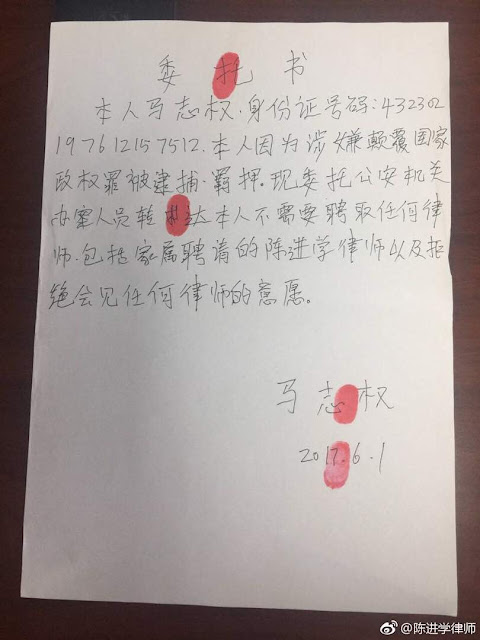 委托书
本人马志权.身份证号码:432302
197612157512.本人因为涉嫌颠覆国家
政权罪被逮捕.羁押.现委托公安机关
办案人员转达本人不需要聘取任何律
师.包括家属聘请的陈进学律师以及拒
绝会见任何律师的意愿。
马志权
2017.6.1
@陈进学律师